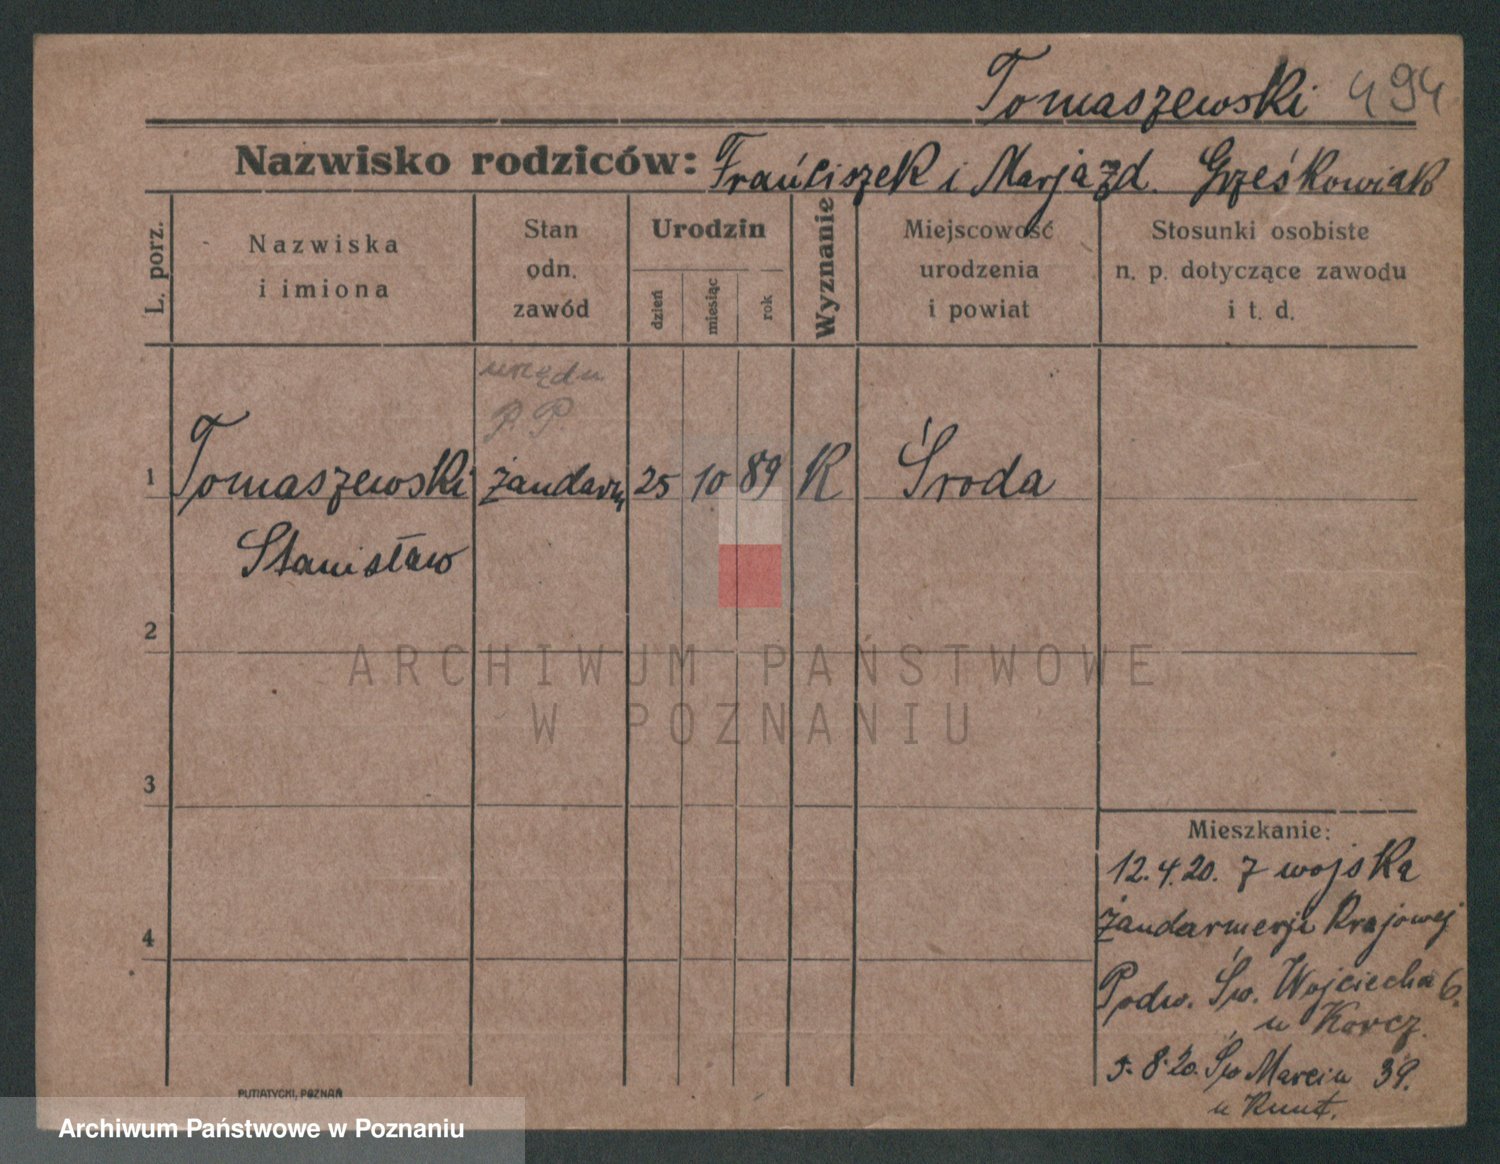 Tomaszewski 494
Nazwisko rodziców: Franciszek i Marja zd. Grześkowiak
L. porz.
Nazwiska
i imiona
Stan
odn.
zawód
Urodzin
dzień
miesiąc
rok
Wyznanie
Miejscowość
urodzenia
i powiat
Stosunki osobiste
n. p. dotyczące zawodu
i t. d.
urzędn
P. P.
1 Tomaszewski żandarm 25 10 89 K Środa
Stanisław
2
ARCHIWUM PAŃSTWOWE
W POZNANIU
3
4
Mieszkanie:
12.4.20. z wojska
żandarmerji Krajowej
Podw. Św. Wojciecha 6.
u Korcz.
5.8.20. Św Marcin 39.
u
PUTIATYCKI, POZNAŃ
Archiwum Państwowe w Poznaniu